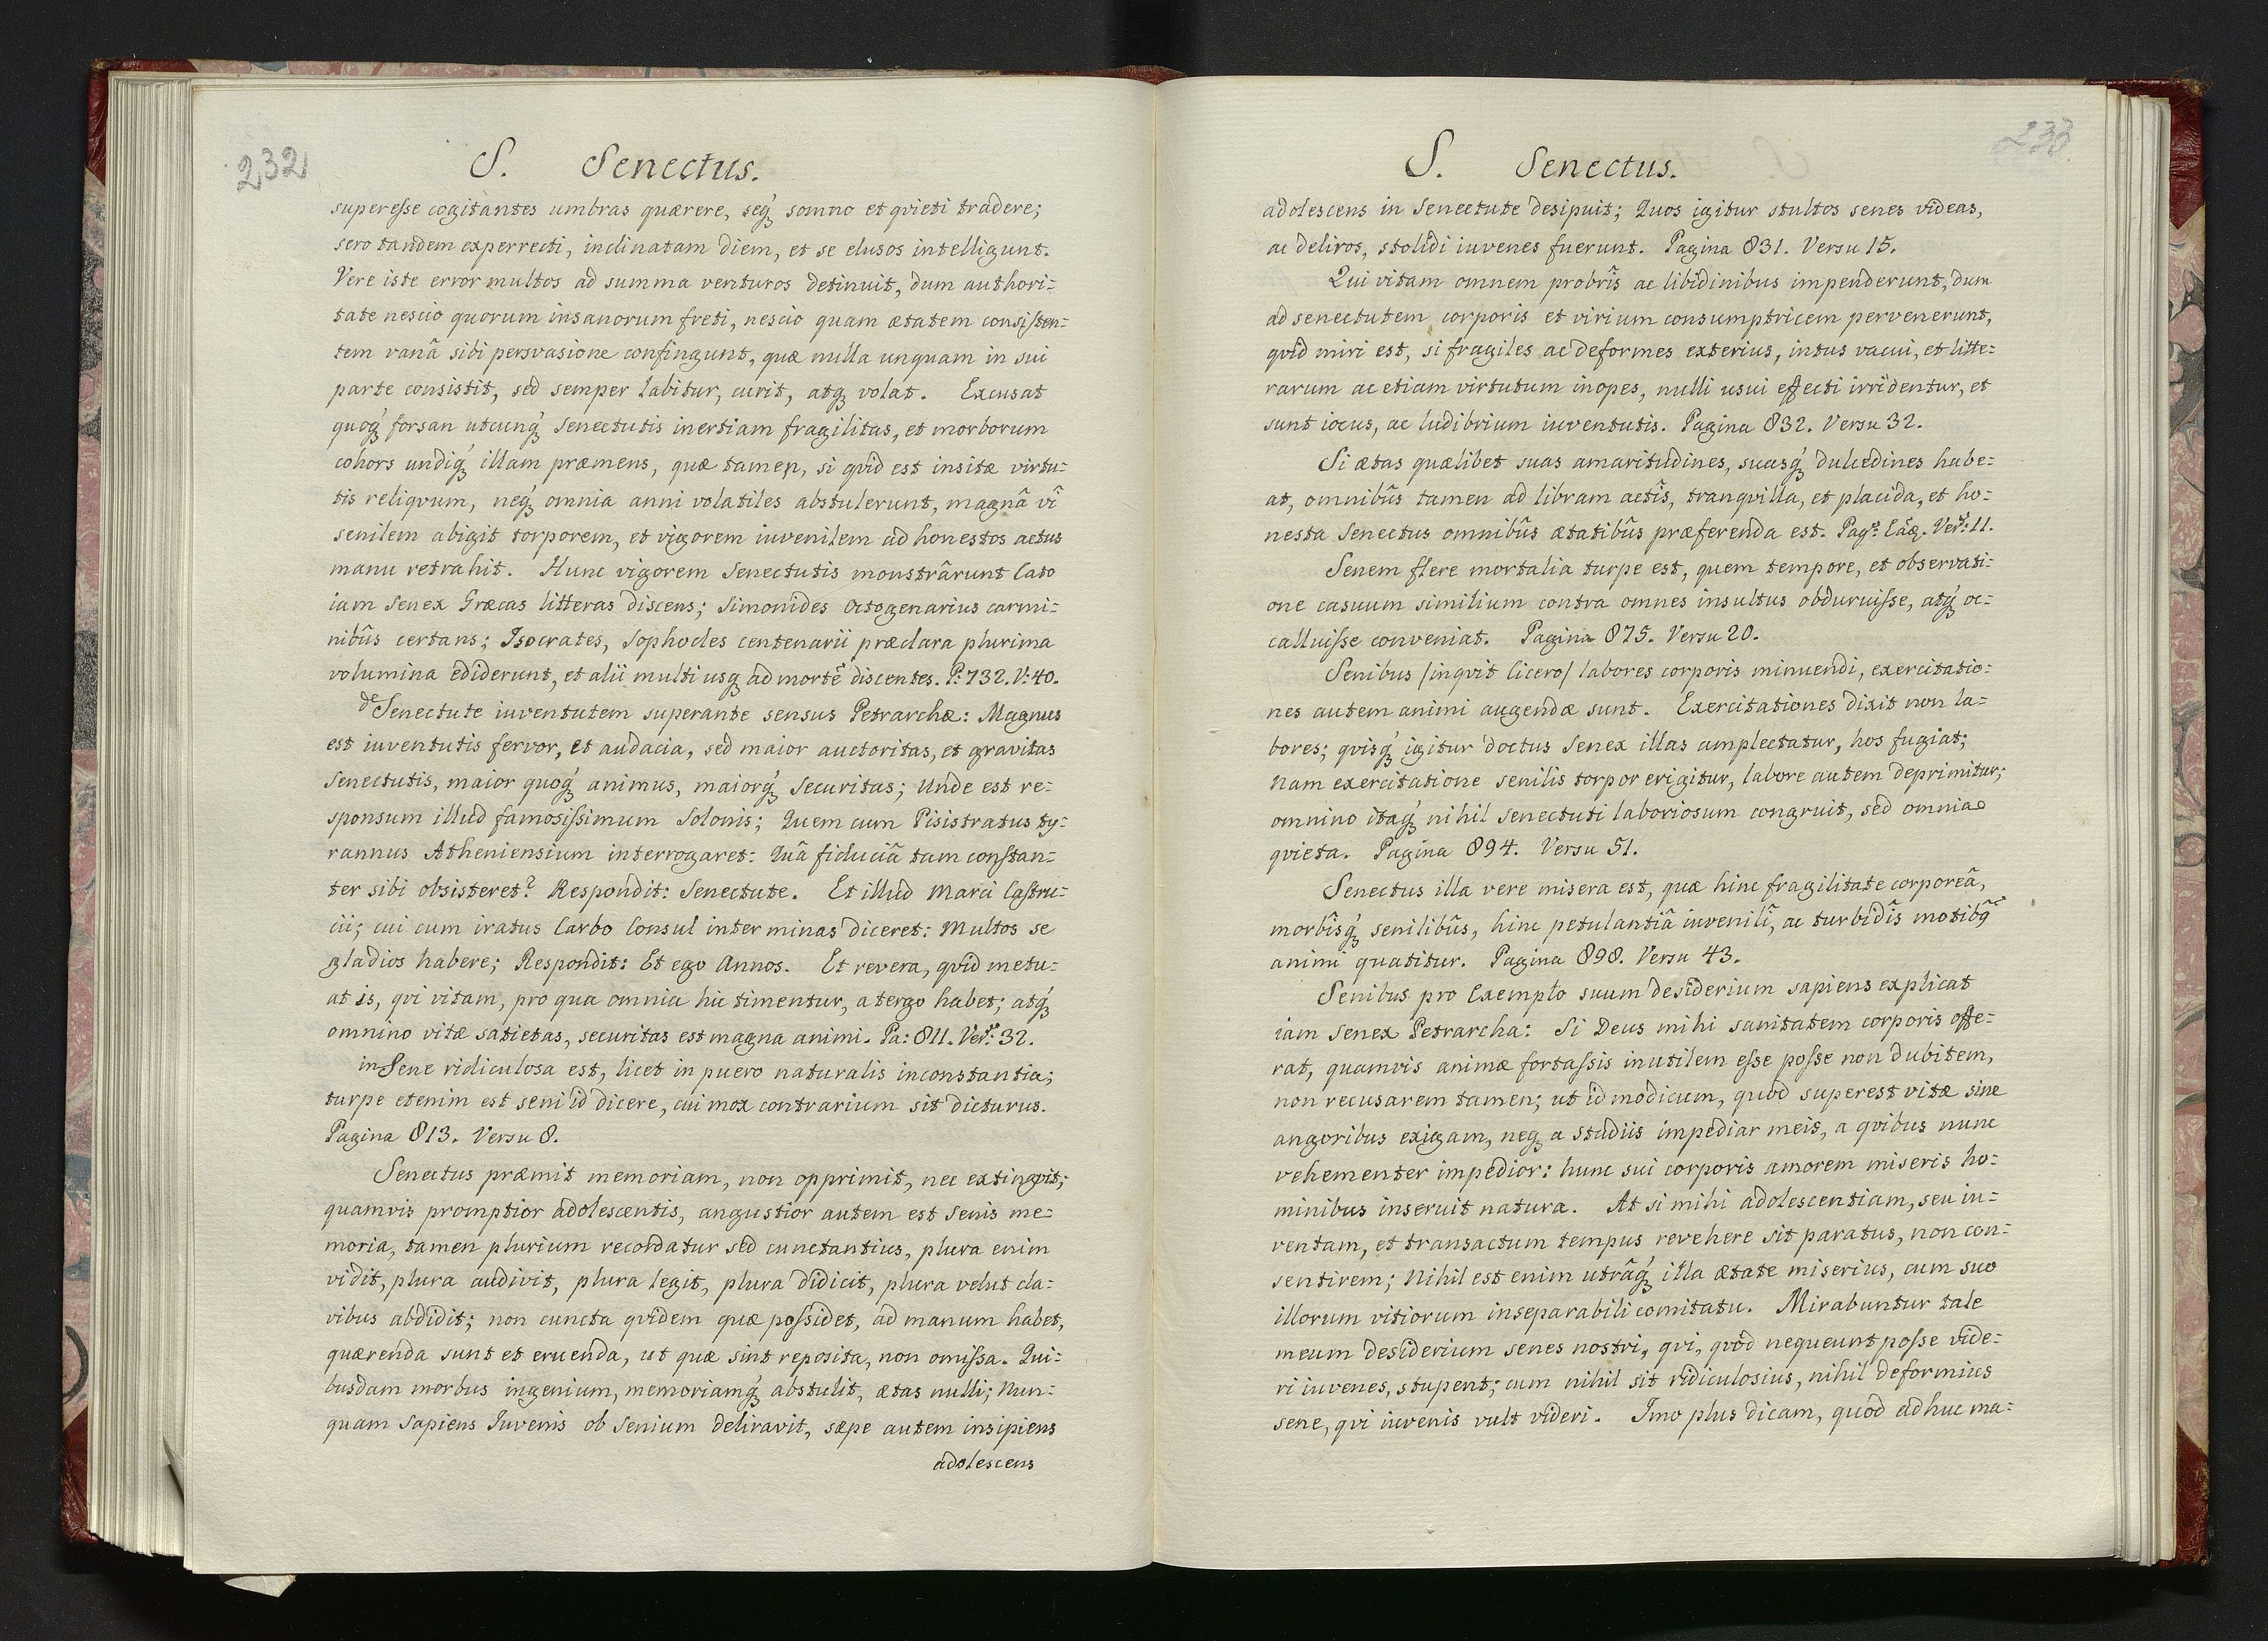 232
S. Senectus.
superesse cogitantes umbras quærere, seq́; somno et qvieti tradere;
sero tandem experrecti, inclinatam diem, et se elusos intelligunt.
Vere iste error multos ad summa venturos detinuit, dum authori=
tate nescio quorum insanorum freti, nescio quam ætatem consisten=
tem vanâ sibi persvasione confingunt, quæ nulla unquam in sui
parte consistit, sed semper labitur, curit, atq; volat. Excusat
quoq́; forsan utcunq́; Senectutis inertiam fragilitas, et morborum
cohors undiq́; illam præmens, quæ tamen, si qvid est insitæ virtu=
tis reliqvum, neq́; omnia anni volatiles abstulerunt, magnâ vî
senilem abigit torporem, et vigorem iuvenilem ad honestos actus
manu retrahit. Hunc vigorem Senectutis monstrârunt Cato
iam Senex Græcas litteras discens; Simonides Octogenarius carmi=
nibûs certans; Isocrates, Sophocles centenarii præclara plurima
volumina ediderunt, et alii multi usq; ad mortẽ discentes. P: 732. V: 40.
de Senectute iuventutem superante sensus Petrarchæ: Magnus
est iuventutis fervor, et audacia, sed maior auctoritas, et gravitas
Senectutis, maior quoq́; animus, maiorq́; Securitas; Unde est re=
sponsum illud famosissimum Solonis; Quem cum Pisistratus ty=
rannus Atheniensium interrogaret: Quâ fiduciâ tam constan=
ter sibi obsisteret? Respondit: Senectute. Et illud Marci Castru=
cii; cui cum iratus Carbo Consul inter minas diceret: Multos se
gladios habere; Respondit: Et ego Annos. Et revera, qvid metu=
at is, qvi vitam, pro qua omnia hic timentur, a tergo habet; atq́;
omnino vitæ satietas, securitas est magna animi. Pa: 811. Versu: 32.
in Sene ridiculosa est, licet in puero naturalis inconstantia;
turpe etenim est seni id dicere, cui mox contrarium sit dicturus.
Pagina 813. Versu 8.
Senectus præmit memoriam, non opprimit, nec extingvit;
quamvis promptior adolescentis, angustior autem est Senis me=
moria, tamen plurium recordatur sed cunctantius, plura enim
vidit, plura audivit, plura legit, plura didicit, plura velut cla=
vibus abdidit; non cuncta qvidem quæ possidet, ad manum habet,
quærenda sunt et eruenda, ut quæ sint reposita, non omissa. Qui=
busdam morbus ingenium, memoriamq́; abstulit, ætas nulli; Nun=
quam Sapiens Iuvenis ob Senium deliravit, sæpe autem insipiens
adolescens
233.
S. Senectus.
adolescens in Senectute desipuit; Quos igitur stultos senes videas,
ac deliros, stolidi iuvenes fuerunt. Pagina 831. Versu 15.
Qui vitam omnem probrîs ac libidinibus impenderunt, dum
ad senectutem corporis et virium consumptricem pervenerunt,
qvid miri est, si fragiles ac deformes exterius, intus vacui, et litte=
rarum ac etiam virtutum inopes, nulli usui effecti irridentur, et
sunt iocus, ac ludibrium iuventutis. Pagina 832. Versu 32.
Si ætas quælibet suas amaritudines, suasq́; dulcedines habe=
at, omnibûs tamen ad libram actîs, tranqvilla, et placida, et ho=
nesta Senectus omnibûs ætatibûs præferenda est. Pag: Eâq. Ver: 11.
Senem flere mortalia turpe est, quem tempore, et observati=
one casuum similium contra omnes insultus obduruisse, atq́; oc=
calluisse conveniat. Pagina 875. Versu 20.
Senibus /inqvit Cicero/ labores corporis minuendi, exercitatio=
nes autem animi augendæ sunt. Exercitationes dixit non la=
bores; qvisq́; igitur doctus Senex illas amplectatur, hos fugiat;
Nam exercitatione senilis torpor erigitur, labore autem deprimitur;
omnino itaq́; nihil senectuti laboriosum congruit, sed omnia
qvieta. Pagina 894. Versu 51.
Senectus illa vere misera est, quæ hinc fragilitate corporeâ,
morbîsq́; senilibûs, hinc petulantiâ iuvenilî, ac turbidîs motibq̂;
animi quatitur. Pagina 898. Versu 43.
Senibus pro Exemplo suum desiderium sapiens explicat
iam Senex Petrarcha: Si Deus mihi sanitatem corporis offe=
rat, quamvis animæ fortassis inutilem esse posse non dubitem,
non recusarem tamen; ut id modicum, quod superest vitæ sine
angoribus exigam, neq; a studiis impediar meis, a qvibus nunc
vehementer impedior: hunc sui corporis amorem miseris ho=
minibus inseruit natura. At si mihi adolescentiam, seu iu=
ventam, et transactum tempus revehere sit paratus, non con=
sentirem; Nihil est enim utrâq́; illa ætate miserius, cum suo
illorum vitiorum inseparabili comitatu. Mirabuntur tale
meum desiderium senes nostri, qvi, qvod nequeunt posse vide=
ri iuvenes, stupent; cum nihil sit ridiculosius, nihil deformius
sene, qvi iuvenis vult videri. Imo plus dicam, quod adhuc ma=